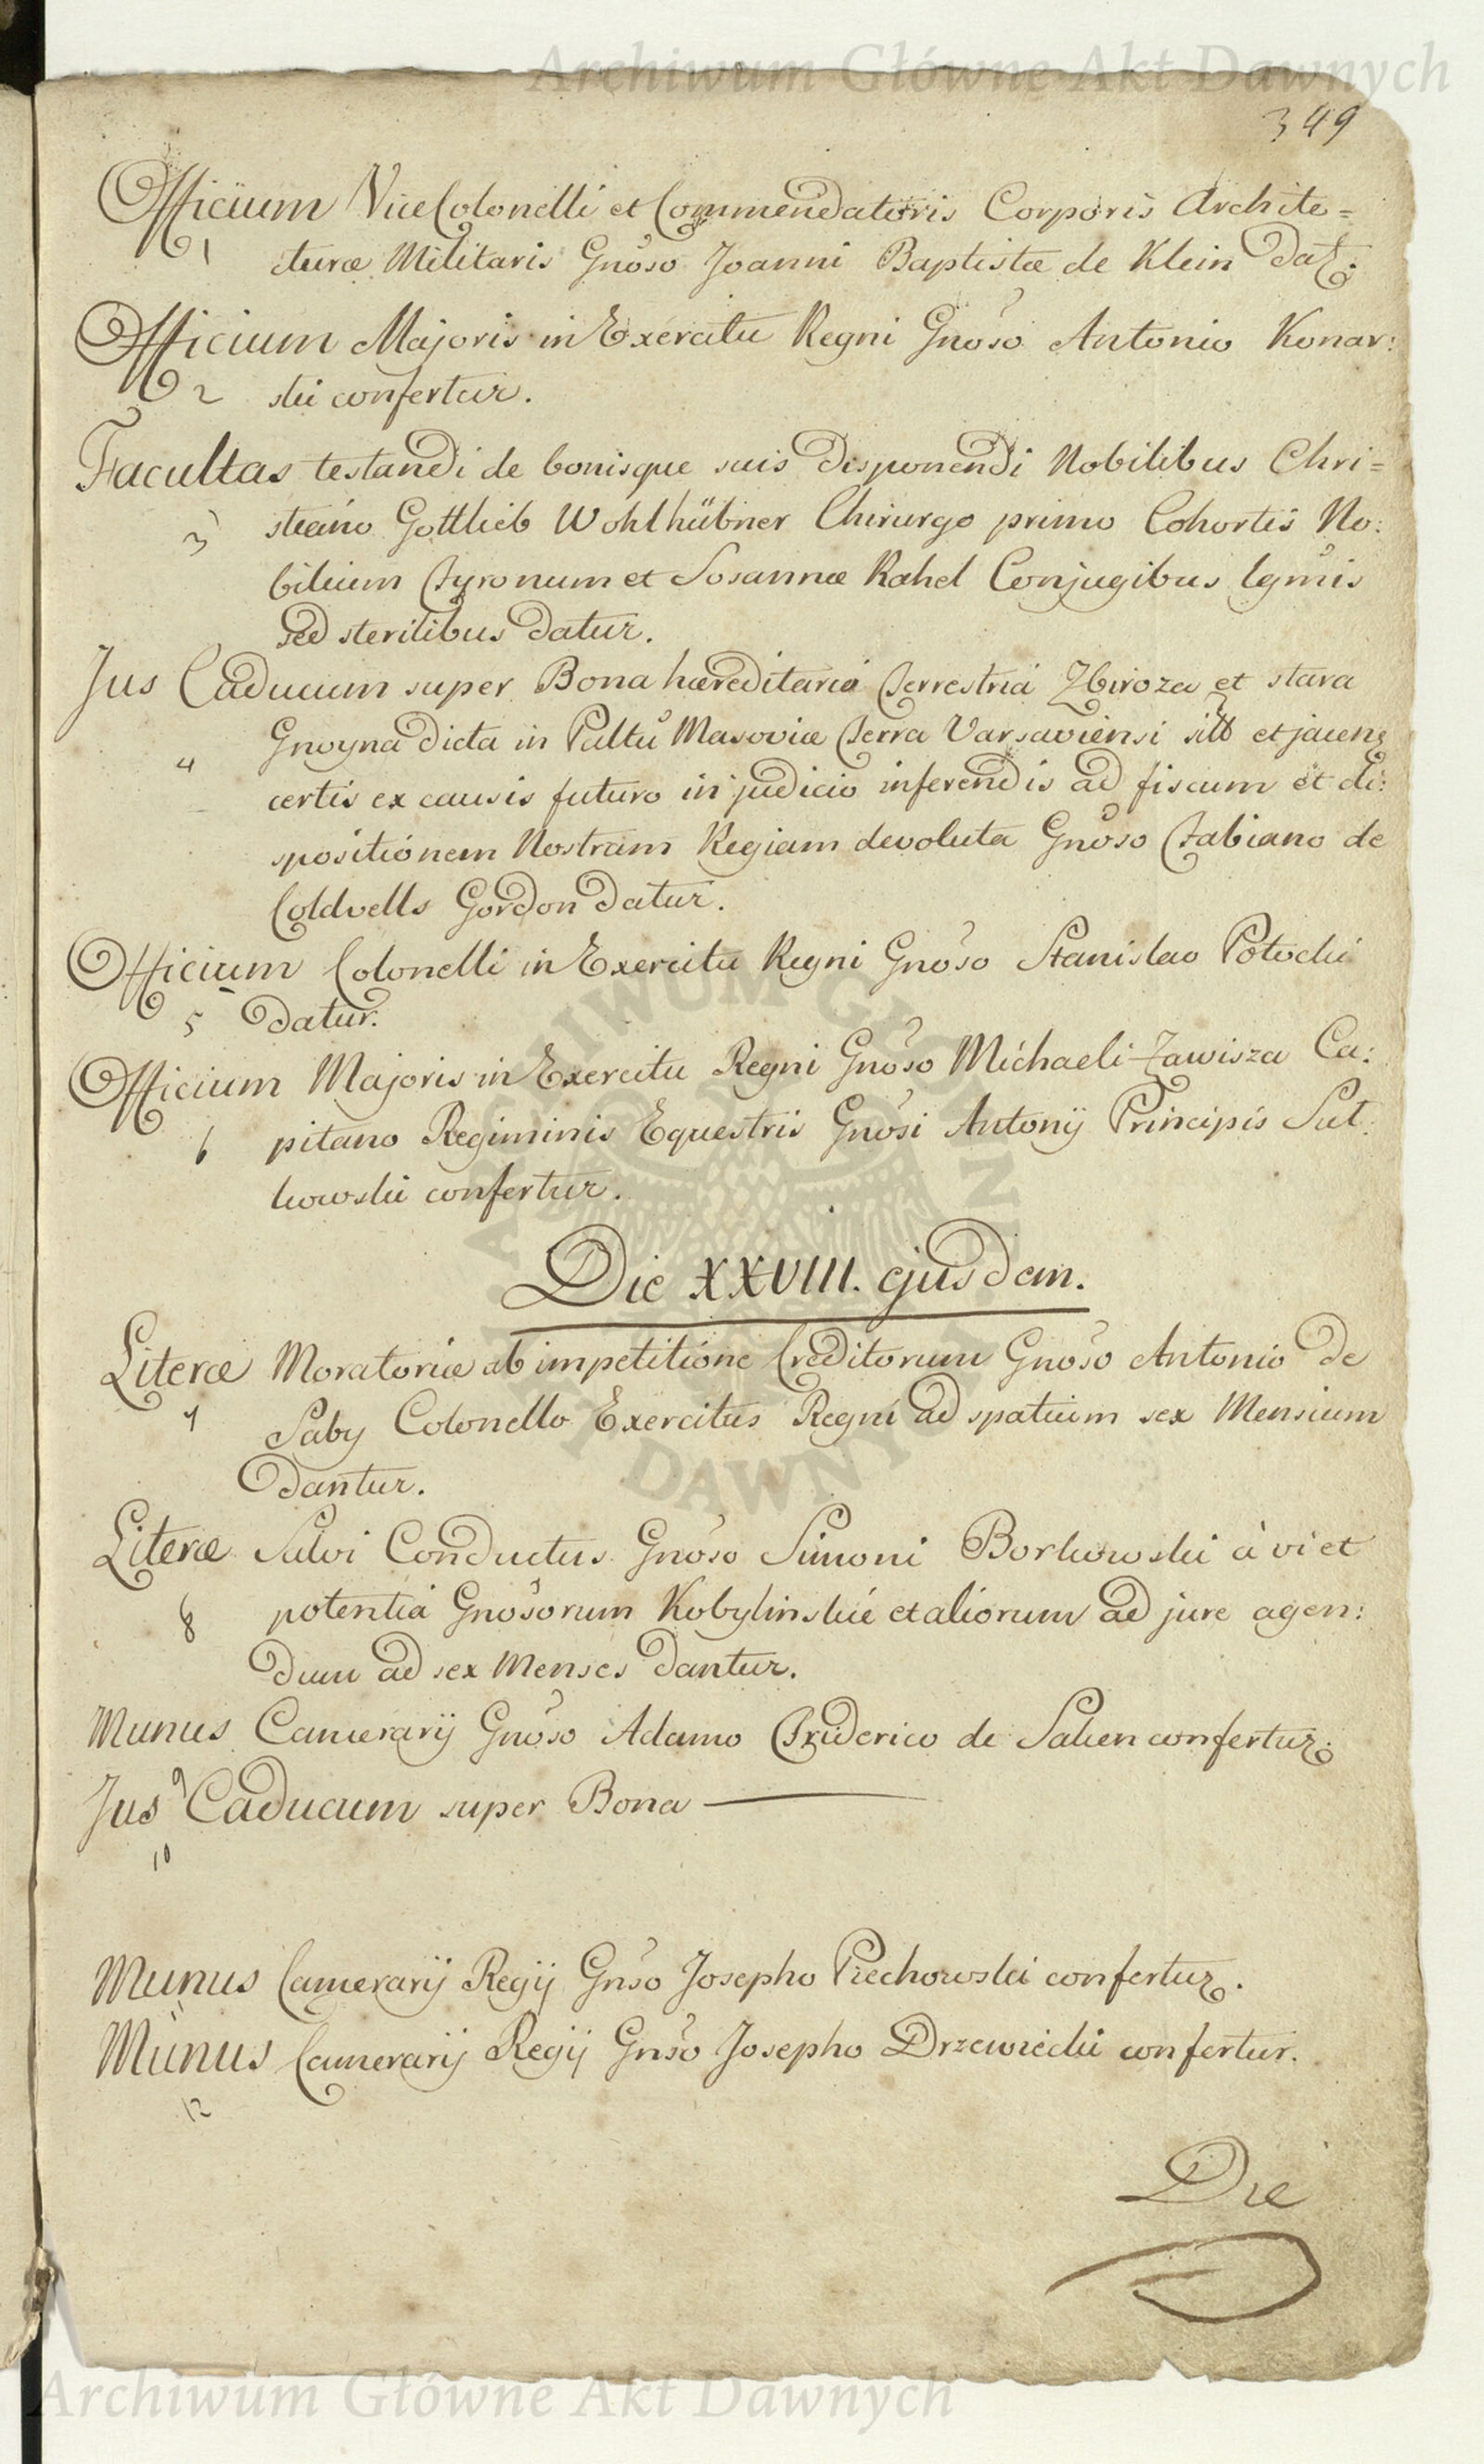 Archiwum Główne Akt Dawnych
349
Officium ViceColonelli et Commendatoris Corporis Archite=
1 cturæ Militaris Gnoso Joanni Baptistæ de Klein Dat.
Officium Majoris in Exercitu Regni Gnoso Antonio Konar:
2 ski confertur.
Facultas testandi de bonisque suis disponendi Nobilibus Chri=
3 stiano Gottlieb Wohlhübner Chirurgo primo Cohortis No:
bilium Tyronum et Sosannæ Rahel Conjugibus lgmis
sed sterilibus datur.
Jus Caducum super Bona hæreditaria Terrestria Zbiroza et stara
Gnoyna dicta in Pallu Masoviæ Terra Varsaviensi sitt et jacen
4 certis ex causis futuro in judicio inferendis ad fiscum et di:
spositionem Nostram Regiam devoluta Gnoso Fabiano de
Coldvells Gordon datur.
Officium Colonelli in Exercitu Regni Gnoso Stanislao Potocki
5 datur.
Officium Majoris in Exercitu Regni Gnoso Michaeli Zawisza Ca:
6 pitano Regiminis Equestris Gnosi Antonij Principis Suł:
kowski confertur.
Die XXVIII. ejusdem.
Literæ Moratoriæ ab impetitione Creditorum Gnoso Antonio de
7 Saby Colonello Exercitus Regni ad spatium sex Mensium
dantur.
Literæ Salvi Conductus Gnoso Simoni Borkowski à vi et
8 potentia Gnosorum Kobylinskie et aliorum ad jure agen:
dum ad sex Menses dantur.
Munus Camerarij Gnoso Adamo Friderico de Saken confertur.
9
Jus Caducum super Bona
10
Munus Camerarij Regij Gnso Josepho Piechowski confertur.
11
Munus Camerarij Regij Gnso Josepho Drzewiecki confertur.
12
Die
ARCHIWUM GŁÓWNE AKT DAWNYCH
Archiwum Główne Akt Dawnych